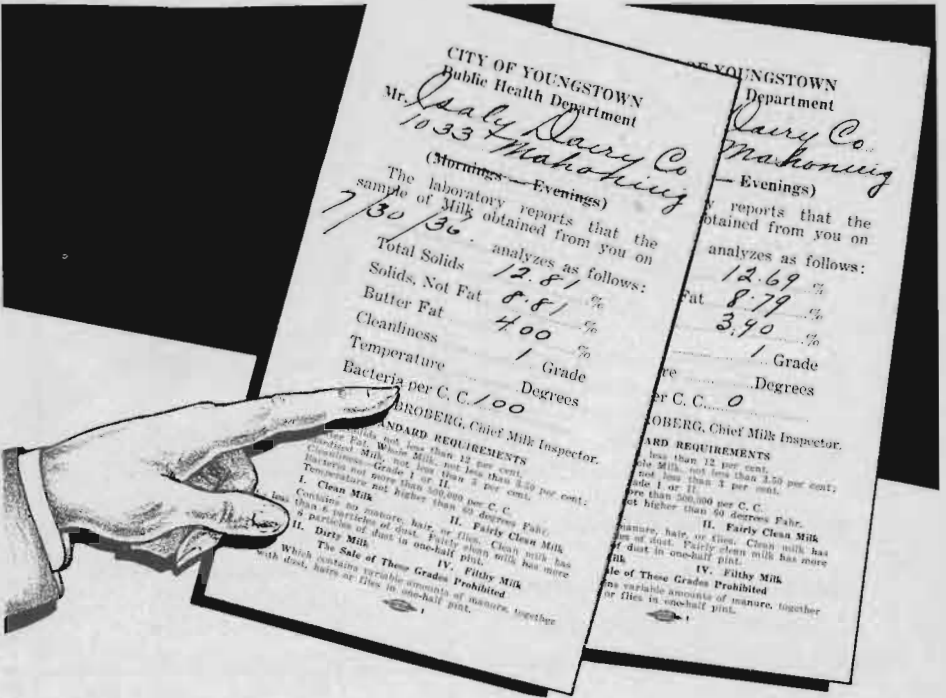 CITY OF YOUNGSTOWN
Public Health Department
Mr. Isaly Dairy Co
1033 Mahoning
(Mornings — Evenings)
The laboratory reports that the
sample of Milk obtained from you on
7/30/36. analyzes as follows:
Total Solids 12.81 %
Solids, Not Fat 8.81 %
Butter Fat 4.00 %
Cleanliness 1 Grade
Temperature Degrees
Bacteria per C. C. 100
BROBERG, Chief Milk Inspector.
STANDARD REQUIREMENTS
Solids not less than 12 per cent.
Butter Fat, Whole Milk, not less than 3.50 per cent;
Standardized Milk, not less than 3 per cent.
Cleanliness—Grade I or II.
Bacteria not more than 500,000 per C. C.
Temperature not higher than 60 degrees Fahr.
I. Clean Milk II. Fairly Clean Milk
Contains no manure, hair, or flies. Clean milk has
less than 6 particles of dust. Fairly clean milk has more
6 particles of dust in one-half pint.
II. Dirty Milk IV. Filthy Milk
The Sale of These Grades Prohibited
Which contains variable amounts of manure, together
with dust, hairs or flies in one-half pint.
1
OF YOUNGSTOWN
Department
Dairy Co.
Mahoning
— Evenings)
y reports that the
btained from you on
analyzes as follows:
12.69 %
Fat 8.79 %
3.90 %
1 Grade
re Degrees
er C. C. 0
ROBERG, Chief Milk Inspector.
ARD REQUIREMENTS
less than 12 per cent.
ole Milk, not less than 3.50 per cent;
not less than 3 per cent.
ade I or II.
ore than 500,000 per C. C.
ot higher than 60 degrees Fahr.
II. Fairly Clean Milk
manure, hair, or flies. Clean milk has
les of dust. Fairly clean milk has more
of dust in one-half pint.
ilk IV. Filthy Milk
le of These Grades Prohibited
ns variable amounts of manure, together
or flies in one-half pint.
1